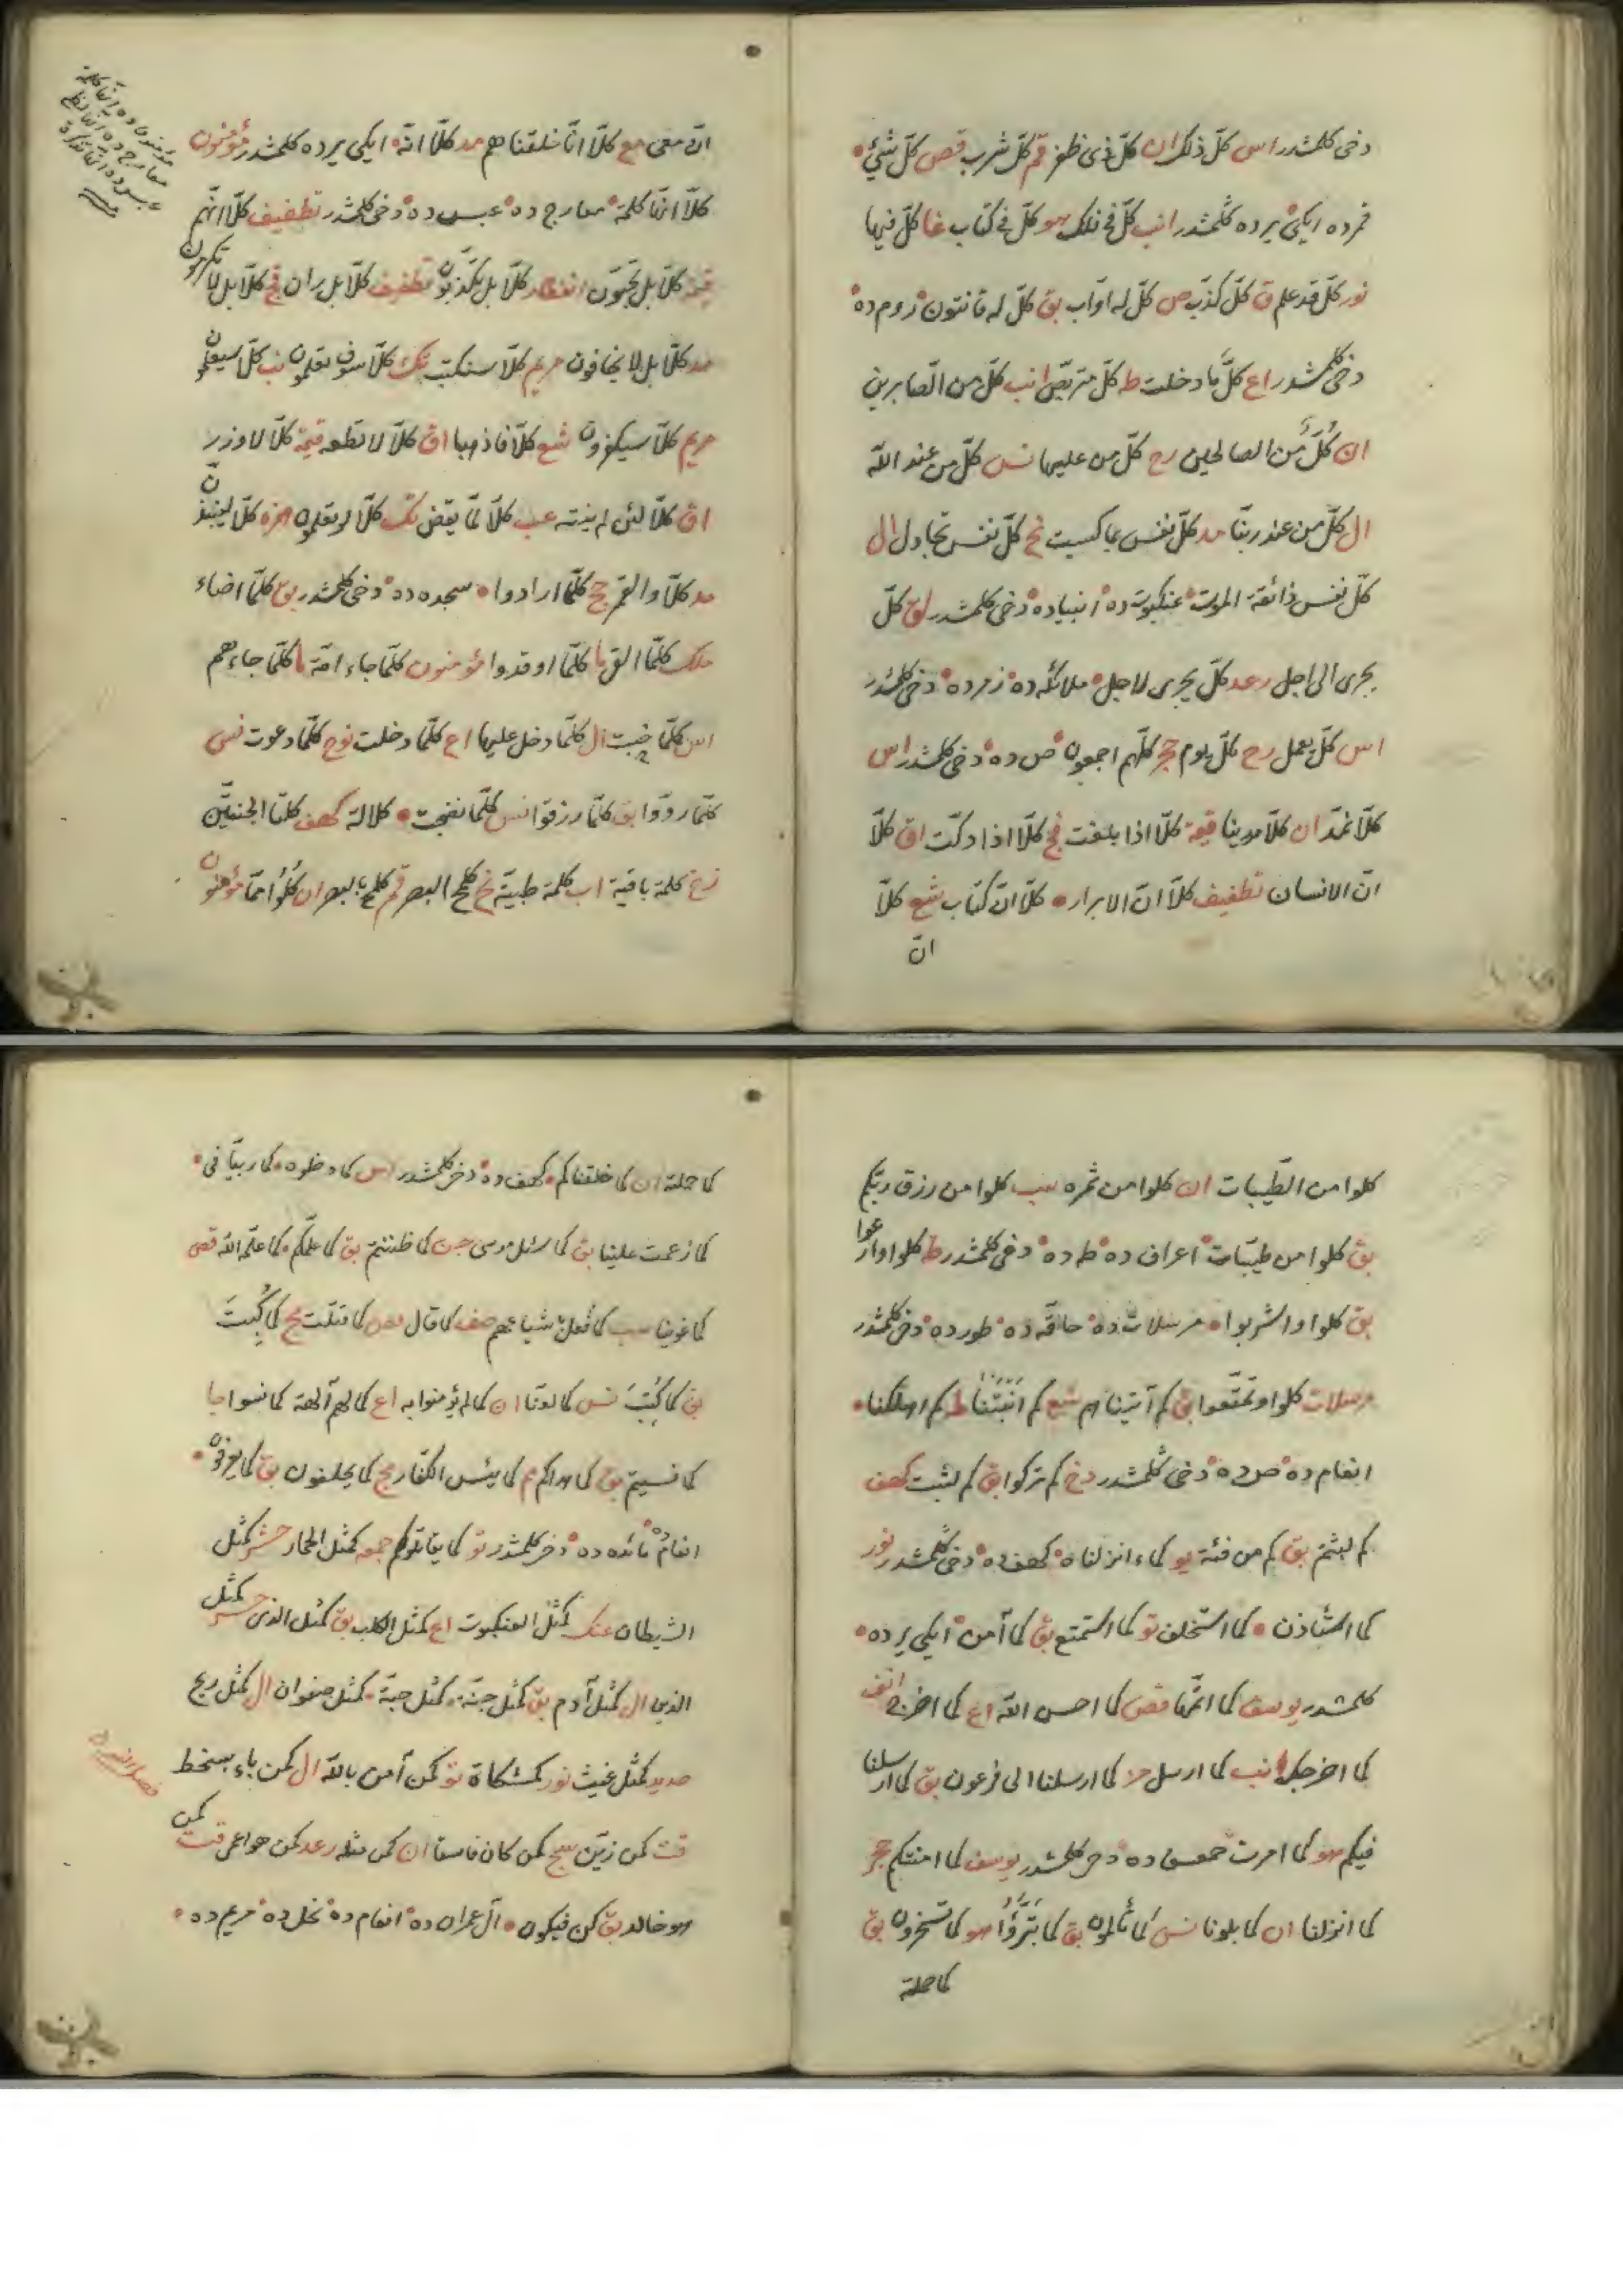 دخی كلمشدر اس كلّ ذلك ان كلّ ذی ظفر قم كلّ شرب قص كلّ شئ
قمر ده ایكی یرده كلمشدر انب كلّ فی فلك هو كلّ فی كتاب غا كلّ فیها
نور كلّ قد علم ق كلّ كذّب ص كلّ له اوّاب بق كلّ له قانتون روم ده
دخی كلمشدر اع كلّما دخلت ط كلّ متربّص انب كلّ من الصّابرین
ان كُلٌّ مّن الصالحین رح كلّ من علیها نس كلّ من عند اللّه
ال كلّ من عند ربّنا مد كلّ نفس بما كسبت نح كلّ نفس تجادل ال
كلّ نفس ذائقة الموت عنكبوت ده انبیاده دخی كلمشدر لق كلّ
یجری الی اجل رعد كلّ یجری لاجل ملائكه ده زمر ده دخی كلمشدر
اس كلّ یعمل رح كلّ یوم حجر كلّهم اجمعون ص ده دخی كلمشدر اس
كلّا نمدّ ان كلّا هدینا قیمة كلّا اذا بلغت فج كلّا اذا دكّت اق كلّا
انّ الانسان تطفیف كلّا انّ الابرار كلّا انّ كتاب شع كلّا
انّ
انّ معی مع كلّا انّا خلقناهم مد كلّا انّه ایكی یرده كلمشدر مؤمنون
كلّا انّها كلمة معارج ده عبس ده دخی كلمشدر تطفیف كلّا انّهم
قیمة كلّا بل تحبّون انفطار كلّا بل تكذّبون تطفیف كلّا بل ران فج كلّا بل لا تكرمون
مد كلّا بل لا یخافون مریم كلّا سنكتب تك كلّا سوف تعلمون نب كلّا سیعلمون
مریم كلّا سیكفرون شع كلّا فاذهبا اق كلّا لا تطعه قیمة كلّا لا وزر
اق كلّا لئن لم ینته عب كلّا لمّا یقض تك كلّا لو تعلمون همزه كلّا لینبذنّ
مد كلّا والقمر حج كلّما ارادوا سجده ده دخی كلمشدر بق كلّما اضاء
ملك كلّما القی ما كلّما اوقدوا مؤمنون كلّما جاء امّة ما كلّما جاءهم
اس كلّما خبت ال كلّما دخل علیها اع كلّما دخلت نوح كلّما دعوت نس
كلّما ردّوا بق كلّما رزقوا نس كلّما نضجت كلالة كهف كلتا الجنتین
زخ كلمة باقیة اب كلمة طیبة نح كلمح البصر قم كلمح بالبصر ان كُلُوا ممّا مؤمنون
كلوا من الطّیبات ان كلوا من ثمره سب كلوا من رزق ربّكم
بق كلوا من طیّبات اعراف ده طه ده دخی كلمشدر ط كلوا وارعوا
بق كلوا واشربوا مرسلات ده حاقّه ده طور ده دخی كلمشدر
مرسلات كلوا وتمتّعوا بق كم آتیناهم شع كم انبتنا ط كم اهلكنا
انعام ده ص ده دخی كلمشدر دخ كم تركوا بق كم لبثت كهف
كم لبثتم بق كم من فئة یو كماء انزلناه كهف ده دخی كلمشدر نور
كما استأذن كما استخلف تو كما استمتع بق كما آمن ایكی یرده
كلمشدر یوسف كما اتمّها قص كما احسن اللّه اع كما اخرج انف
كما اخرجك انب كما ارسل مز كما ارسلنا الی فرعون بق كما ارسلنا
فیكم هو كما امرت حمعسق ده دخی كلمشدر یوسف كما امنتكم حجر
كما انزلنا ان كما بلونا نس كما تألمون بق كما تبرّؤا هو كما تسخرون بق
كما حملته
كما حملته ان كما خلقناكم كهف ده دخی كلمشدر اس كما دخلوه كما ربّیانی
كما زعمت علینا بق كما سئل موسی جن كما ظننتم بق كما علّمكم كما علّمه اللّه قص
كما غوینا سب كما فعل باشیاعهم صف كما قال قص كما قتلت مج كما كُبِتَ
بق كما كُتِبَ نس كما لعنّا ان كما لم یؤمنوا به اع كما لهم آلهة كما نسوا جا
كما نسیتم بق كما هداكم مم كما یئس الكفّار مج كما یحلفون بق كما یعرفون
انعام ده مائده ده دخی كلمشدر تو كما یقاتلونكم جمعه كمثل الحمار حشر كمثل
الشیطان عنك كمثل العنكبوت اع كمثل الكلب بق كمثل الذی حشر كمثل
الذین ال كمثل آدم بق كمثل جنّة كمثل حبّة كمثل صفوان ال كمثل ریح
حدید كمثل غیث نور كمشكاة تو كمن آمن باللّه ال كمن باء بسخط
قت كمن زیّن سج كمن كان فاسقا ان كمن مثله رعد كمن هو اعمی قت كمن
هو خالد بق كن فیكون آل عمران ده انعام ده نحل ده مریم ده